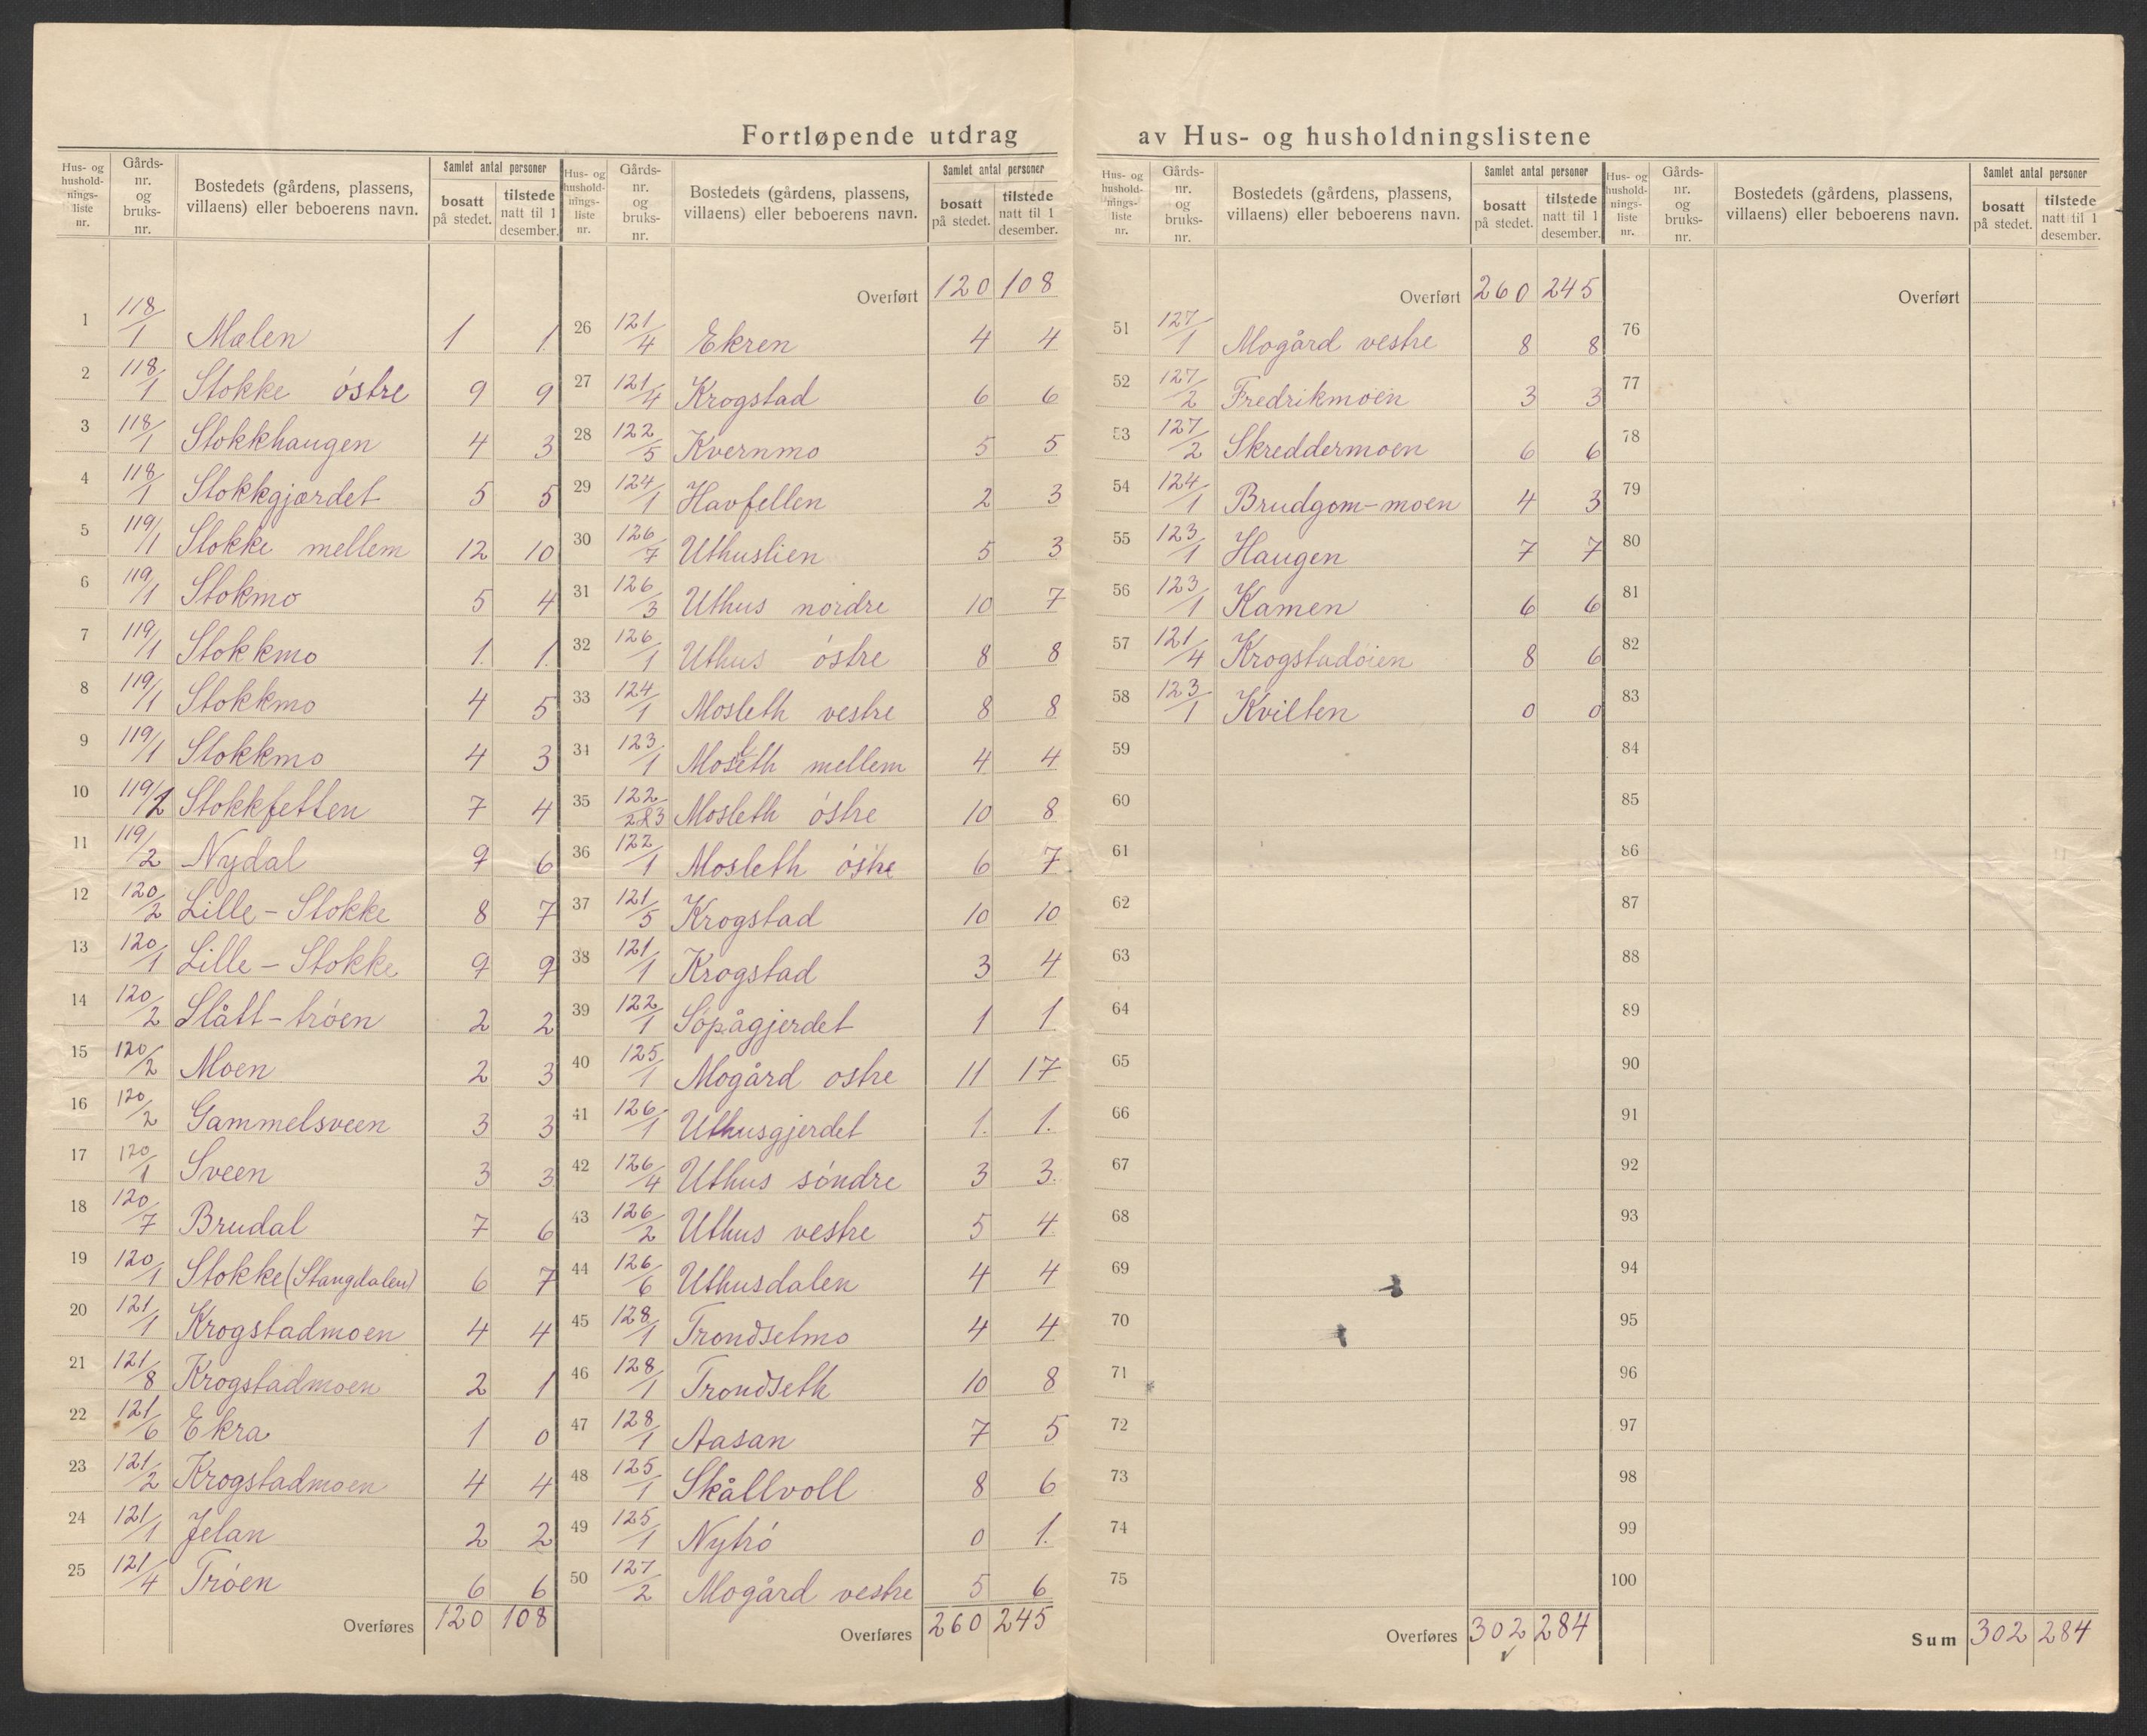 Fortløpende utdrag av Hus- og husholdningslistene
Hus- og hushold-nings-liste nr. | Gårds-nr. og bruks-nr. | Bostedets (gårdens, plassens, villaens) eller beboerens navn. | Samlet antal personer | bosatt på stedet. | tilstede natt til 1 desember.
1 118/1 Mælen 1 1
2 118/1 Stokke östre 9 9
3 118/1 Stokkhaugen 4 3
4 118/1 Stokkgjærdet 5 5
5 119/1 Stokke mellem 12 10
6 119/1 Stokmo 5 4
7 119/1 Stokkmo 1. 1.
8 119/1 Stokkmo 4 5
9 119/1 Stokkmo 4 3
10 119/2 Stokkfetten 7 4
11 119/2 Nydal 9 6
12 120/2 Lille-Stokke 8 7
13 120/1 Lille-Stokke 9 9
14 120/2 Slått-tröen 2 2
15 120/2 Moen 2 3
16 120/2 Gammelsveen 3 3
17 120/1 Sveen 3 3
18 120/7 Brudal 7 6
19 120/1 Stokke (Stangdalen) 6 7
20 121/1 Krogstadmoen 4 4
21 121/8 Krogstadmoen 2 1
22 121/6 Ekra 1 0
23 121/2 Krogstadmoen 4 4
24 121/1 Jelan 2 2
25 121/4 Tröen 6 6
Overføres 120 108
Hus- og hushold-nings-liste nr. | Gårds-nr. og bruks-nr. | Bostedets (gårdens, plassens, villaens) eller beboerens navn. | Samlet antal personer | bosatt på stedet. | tilstede natt til 1 desember.
Overført 120 108
26 121/4 Ekren 4 4
27 121/4 Krogstad 6 6
28 122/5 Kvernmo 5 5
29 124/1 Havfellen 2 3
30 126/7 Uthuslien 5 3
31 126/3 Uthus nordre 10 7
32 126/1 Uthus östre 8 8
33 124/1 Mosleth vestre 8 8
34 123/1 Mosleth mellem 4 4
35 122/2&3 Mosleth östre 10 8
36 122/1 Mosleth östre 6 7
37 121/5 Krogstad 10 10
38 121/1 Krogstad 3 4
39 122/1 Söpågjerdet 1 1
40 125/1 Mogård ostre 11 17
41 126/1 Uthusgjerdet 1. 1.
42 126/4 Uthus söndre 3 3.
43 126/2 Uthus vestre 5 4
44 126/6 Uthusdalen 4 4
45 128/1 Trondsetmo 4 4
46 128/1 Trondseth 10 8
47 128/1 Aasan 7 5
48 125/1 Skållvoll 8 6
49 125/1 Nytrö 0 1.
50 127/2 Mogård vestre 5 6
Overføres 260 245
Hus- og hushold-nings-liste nr. | Gårds-nr. og bruks-nr. | Bostedets (gårdens, plassens, villaens) eller beboerens navn. | Samlet antal personer | bosatt på stedet. | tilstede natt til 1 desember.
Overført 260 245
51 127/1 Mogård vestre 8 8
52 127/2 Fredrikmoen 3 3
53 127/2 Skreddermoen 6 6
54 124/1 Brudgom-moen 4 3
55 123/1 Haugen 7 7
56 123/1 Kamen 6 6
57 121/4 Krogstadöien 8 6
58 123/1 Kvilten 0 0
59
60
61
62
63
64
65
66
67
68
69
70
71
72
73
74
75
Overføres 302 284
Hus- og hushold-nings-liste nr. | Gårds-nr. og bruks-nr. | Bostedets (gårdens, plassens, villaens) eller beboerens navn. | Samlet antal personer | bosatt på stedet. | tilstede natt til 1 desember.
Overført
76
77
78
79
80
81
82
83
84
85
86
87
88
89
90
91
92
93
94
95
96
97
98
99
100
Sum 302 284